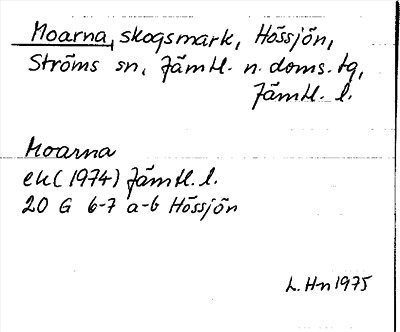 Moarna, skogsmark, Hössjön,
Ströms sn, Jämtl. n. doms. tg,
Jämtl. l.
Moarna
ek (1974) Jämtl. l.
20 G 6-7 a-b Hössjön
L. Hn 1975